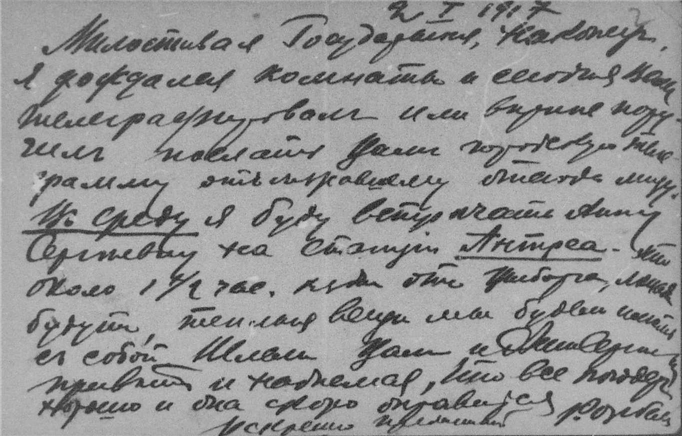 2 I 1917
Милостивая Государыня, наконец,
я дождался комнаты и сегодня Вам
телеграфировалъ или вѣрнѣе пору-
чилъ послать Вамъ городскую теле-
грамму отъѣзжавшему отсюда
Въ среду я буду встрѣчать Анну
Сергѣевну на станціи Антреа - это
около 1 1/2 час. ѣзды отъ Выборга, лошадь
будутъ, теплыя вещи мы будемъ имѣть
съ собой. Шлемъ Вамъ и
привѣтъ и надѣемся, что все пойдетъ
хорошо и она скоро оправится
Искренно преданный